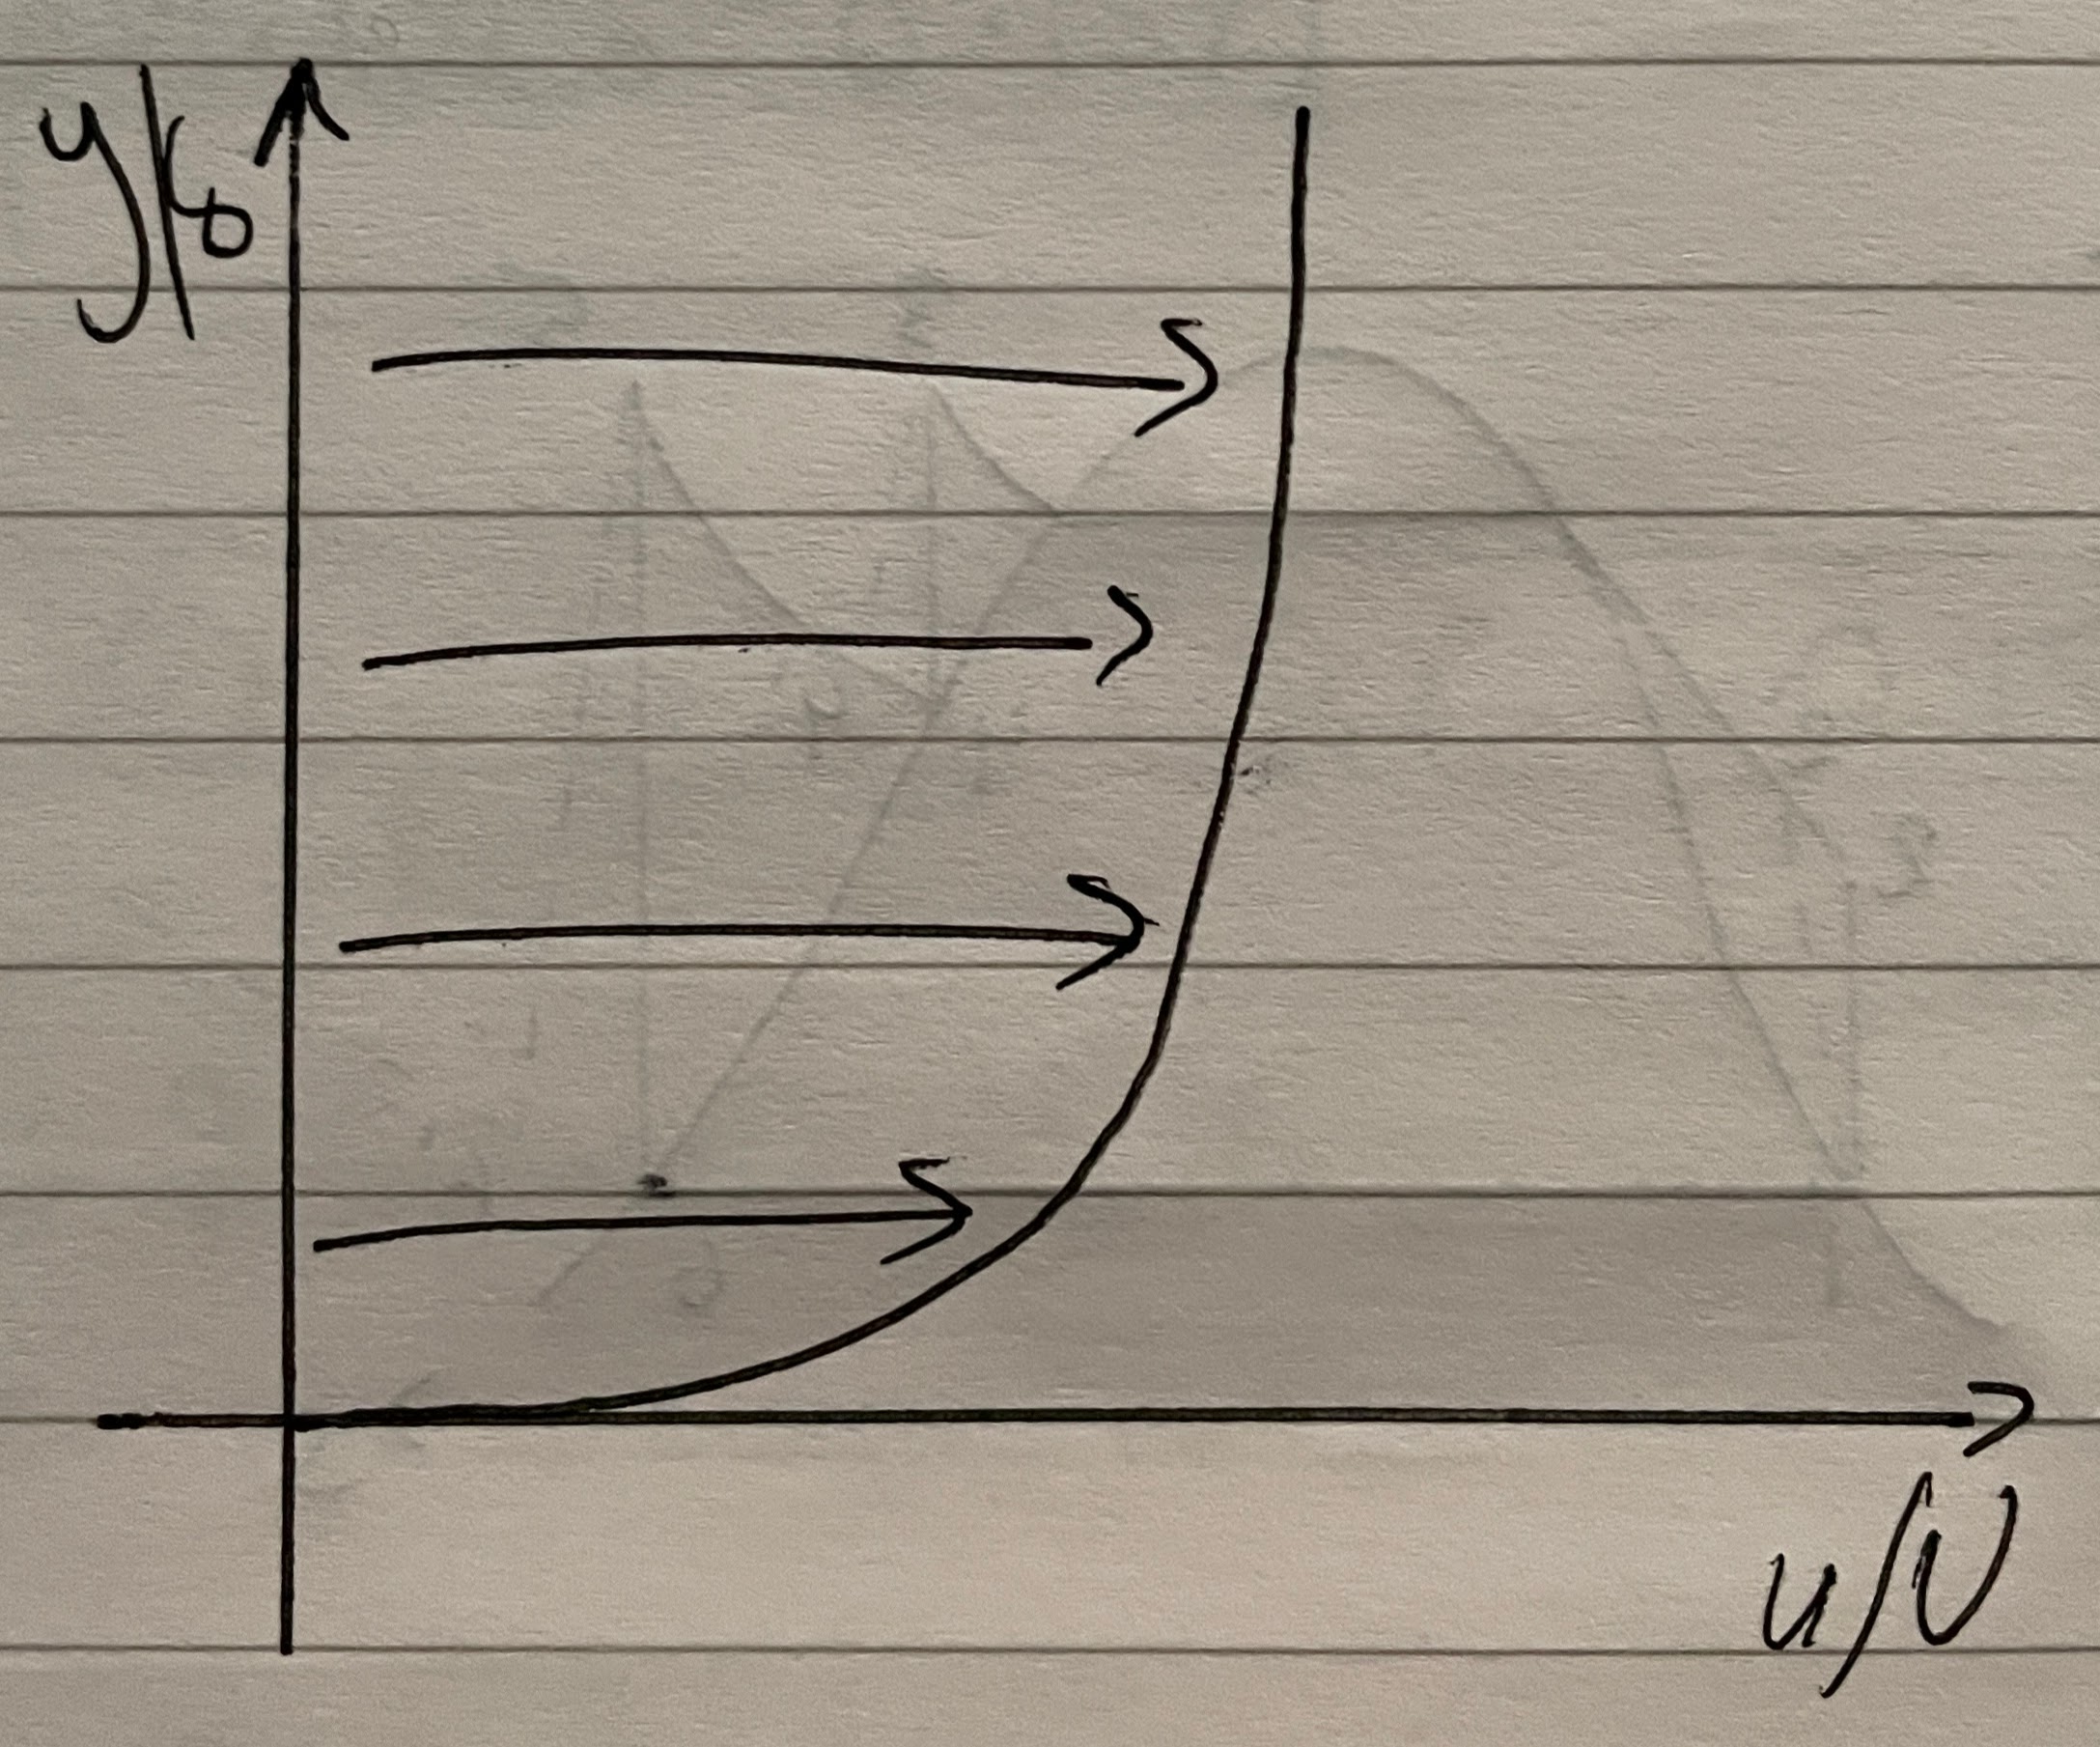 y/δ
u/U